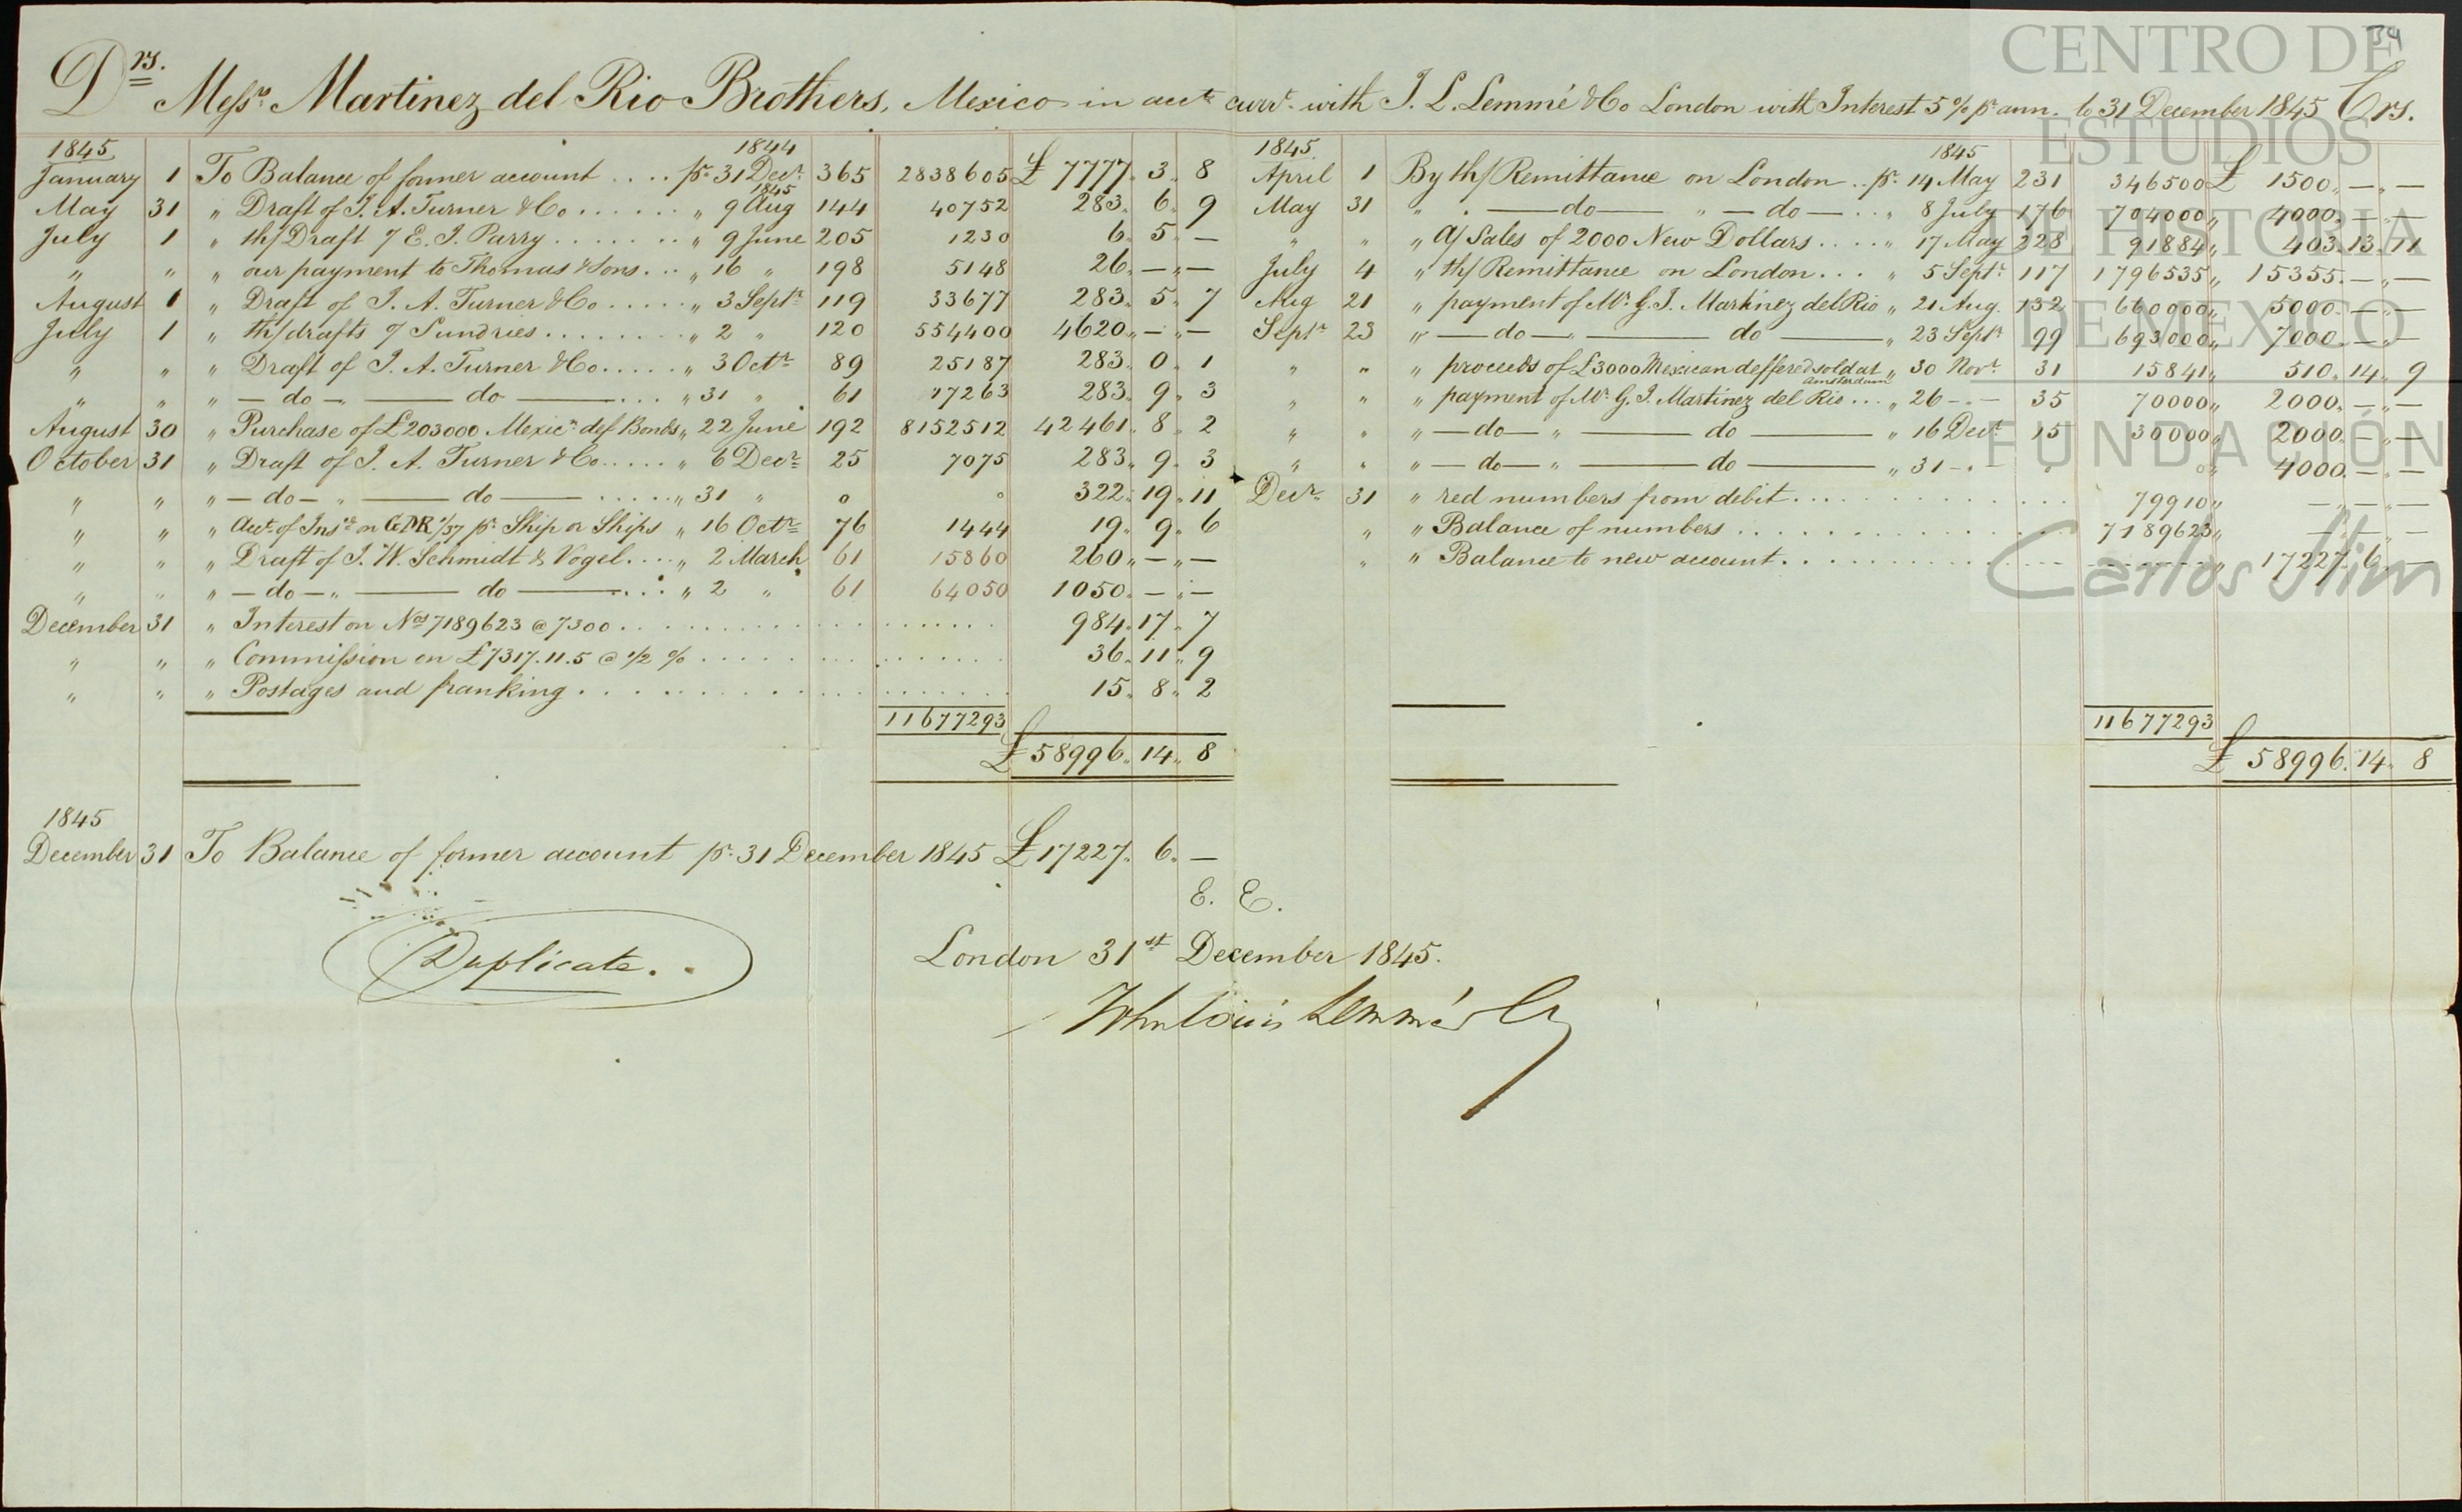 34
Drs. Messrs. Martinez del Rio Brothers, Mexico in acct. currt. with J. L. Lemmé & Co London with Interest 5% pr ann. to 31 December 1845 Crs.
1845 1844
January 1 To Balance of former account .... pr. 31 Decr. 365 2838605 £ 7777. 3. 8
1845
May 31 " Draft of J. A. Turner & Co ...... " 9 Aug 144 40752 283. 6. 9
July 1 " th/ Draft 7 E. J. Parry ....... " 9 June 205 1230 6. 5. —
" " " our payment to Thomas & Sons ... " 16 " 198 5148 26. — " —
August 1 " Draft of J. A. Turner & Co ..... " 3 Septr. 119 33677 283. 5. 7
July 1 " th/ drafts 7 Sundries ........ " 2 " 120 554400 4620. — " —
" " " Draft of J. A. Turner & Co ..... " 3 Octr. 89 25187 283. 0. 1
" " " — do — " — do — ... " 31 " 61 17263 283. 9. 3
August 30 " Purchase of £203000 Mexicn. def Bonds " 22 June 192 8152512 42461. 8. 2
October 31 " Draft of J. A. Turner & Co ..... " 6 Decr. 25 7075 283. 9. 3
" " " — do — " — do — ...... " 31 " 0 0 322. 19. 11
" " " Acct. of Insce. on GMR 1/37 pr. Ship or Ships " 16 Octr. 76 1444 19. 9. 6
" " " Draft of J. W. Schmidt & Vogel .... " 2 March 61 15860 260. — " —
" " " — do — " — do — ... " 2 " 61 64050 1050. — " —
December 31 " Interest on Nos 7189623 @ 7300 ........ 984. 17. 7
" " " Commission on £7317. 11. 5 @ 1/2 % ........ 36. 11. 9
" " " Postages and franking ........ 15. 8. 2
11677293
£ 58996. 14. 8
1845 1845
April 1 By th/ Remittance on London .. pr. 14 May 231 346500 £ 1500. — " —
May 31 " — do — " — do — .. " 8 July 176 704000 " 4000. — " —
" " " A/ Sales of 2000 New Dollars .... " 17 May 228 91884 " 403. 13. 11
July 4 " th/ Remittance on London ... " 5 Septr. 117 1796535 " 15355. — " —
Aug 21 " payment of Mr. G. J. Martinez del Rio " 21 Aug. 132 660000 " 5000. — " —
Septr. 23 " — do — " — do — " 23 Septr. 99 693000 " 7000. — " —
" " " proceeds of £3000 Mexican deffered sold at Amsterdam " 30 Novr. 31 15841 " 510. 14. 9
" " " payment of Mr. G. J. Martinez del Rio ... " 26 — " — 35 70000 " 2000. — " —
" " " — do — " — do — " 16 Decr. 15 30000 " 2000. — " —
" " " — do — " — do — " 31 — " — " 0 " 4000. — " —
Decr. 31 " red numbers from debit ........ 79910 " — " — " —
" " Balance of numbers ........ 7189623 " — " — " —
" " Balance to new account ........ " 17227. 6. —
11677293
£ 58996. 14. 8
1845
December 31 To Balance of former account pr. 31 December 1845 £ 17227. 6. —
E. E.
Duplicate.
London 31st December 1845.
John Louis Lemmé & Co
CENTRO DE
ESTUDIOS
DE HISTORIA
DE MEXICO
FUNDACIÓN
Carlos Slim